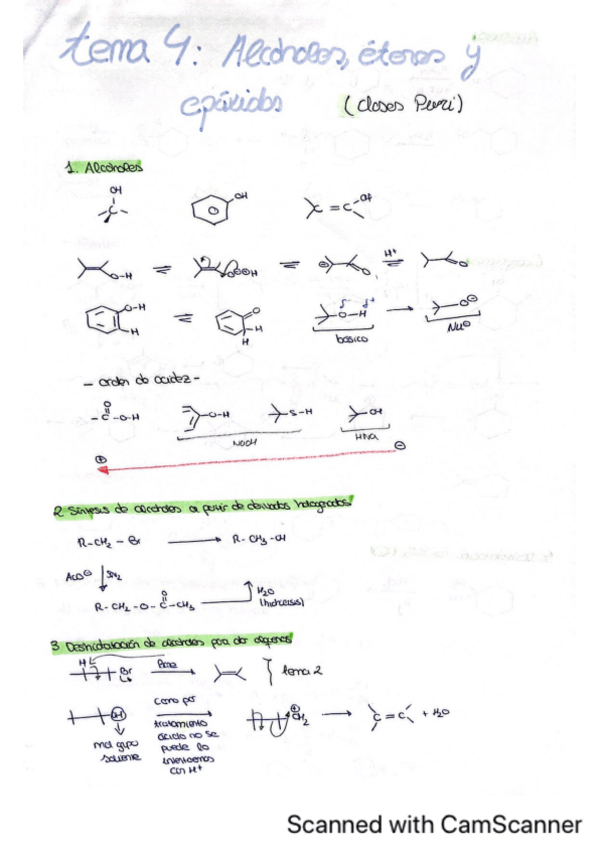 tema 4: Alcoholes, éteres y
epóxidos (clases Puri)
1. Alcoholes
OH
OH
C
C=C OH
O-H
H⁺
O-H
H
O
H
H
δ⁻ δ⁺
O-H
básico
O⊖
Nu⊖
- orden de acidez -
O
-C-O-H
O-H
S-H
OH
NaOH
HNa
⊕ ⊖
2 Síntesis de alcoholes a partir de derivados halogenados
R-CH₂-Br → R-CH₂-OH
AcO⊖ SN₂
O
R-CH₂-O-C-CH₃
H₂O
(hidrólisis)
3 Deshidratación de alcoholes para dar alquenos
H Br Base tema 2
OH
mal grupo
saliente
como por
tratamiento
ácido no se
puede lo
intentamos
con H⁺
⊕
OH₂
C=C + H₂O
Scanned with CamScanner